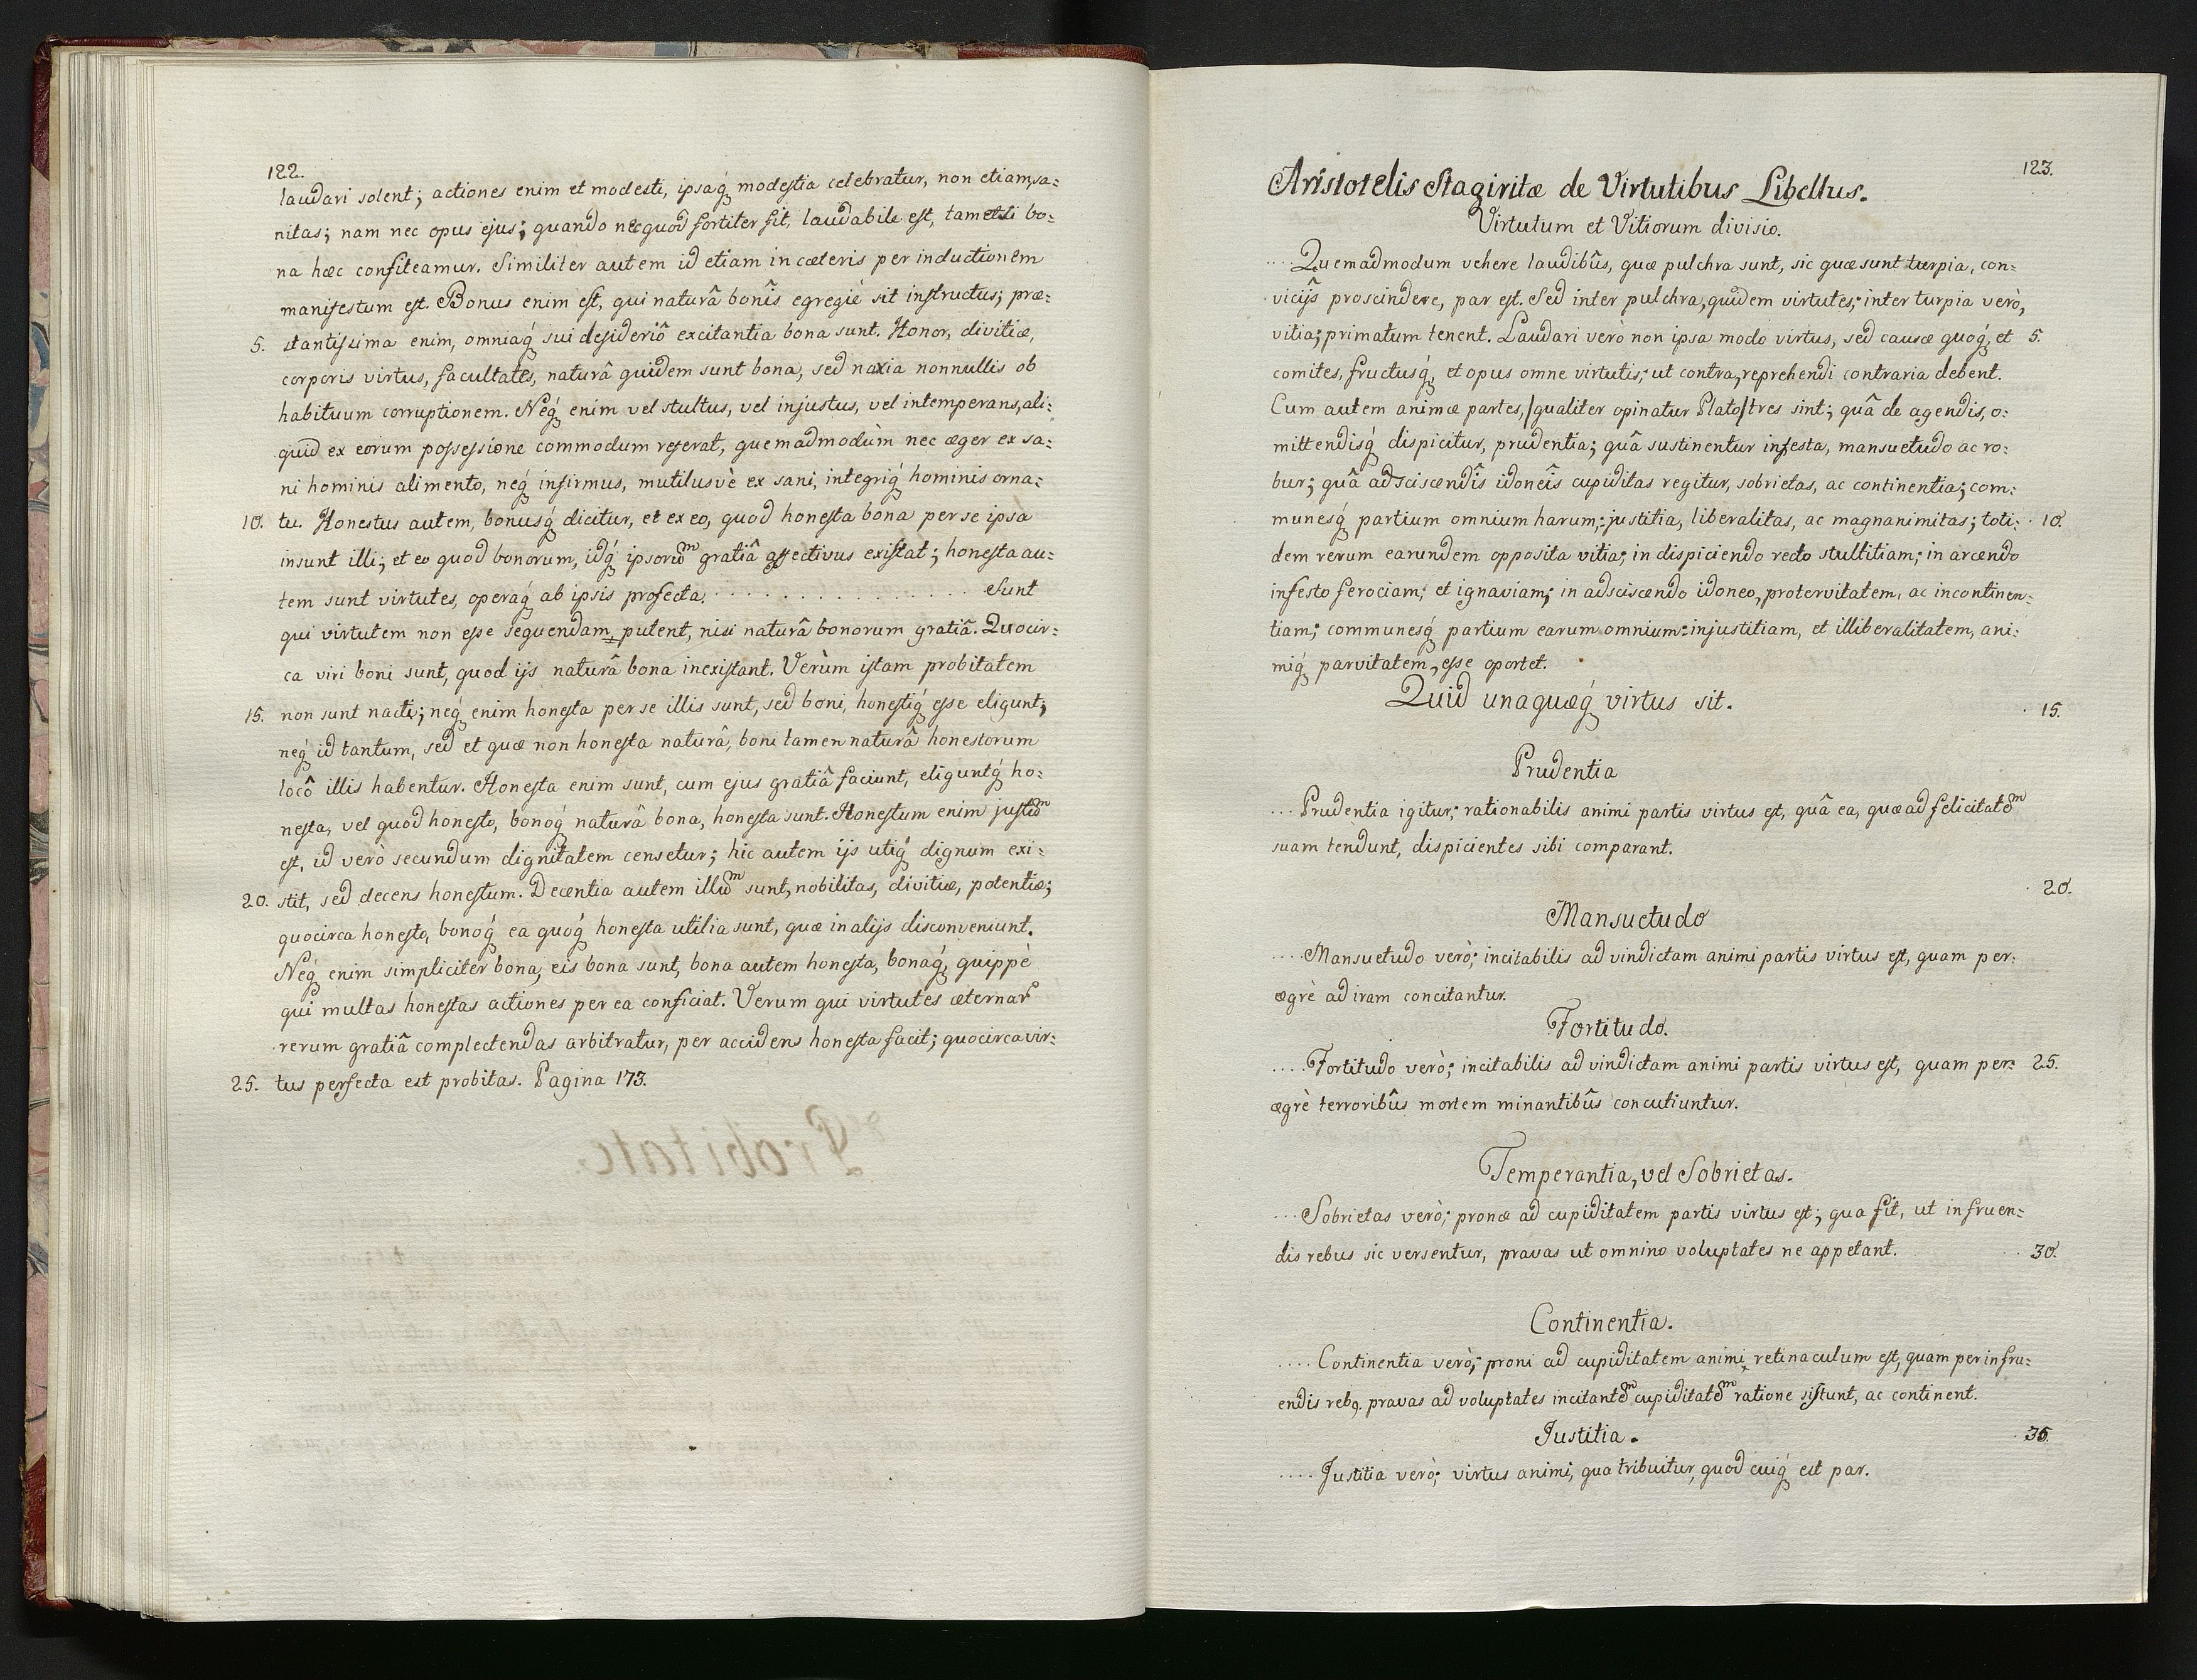 122.
laudari solent; actiones enim et modesti, ipsaq́ modestia celebratur, non etiam, sa:
nitas; nam nec opus ejus; quando nec quod fortiter fit, laudabile est, tametsi bo:
na hæc confiteamur. Similiter autem id etiam in cæteris per inductionem
manifestum est. Bonus enim est, qui naturâ bonîs egregiè sit instructus; præ:
5. stantissima enim, omniaq́ sui desideriô excitantia bona sunt. Honor, divitiæ,
corporis virtus, facultates, naturâ quidem sunt bona, sed noxia nonnullis ob
habituum corruptionem. Neq́ enim vel stultus, vel injustus, vel intemperans, ali:
quid ex eorum possessione commodum referat, quemadmodùm nec æger ex sa:
ni hominis alimento, neq́ infirmus, mutilusvè ex sani, integriq́ hominis orna:
10. tu. Honestus autem, bonusq́ dicitur, et ex eo, quod honesta bona per se ipsa
insunt illi; et eo quod bonorum, idq́ ipsorũm gratiâ effectivus existat; honesta au:
tem sunt virtutes, operaq́ ab ipsis profecta. . . . . . . . . . . . . . . . Sunt
qui virtutem non esse sequendam, putent, nisi naturâ bonorum gratiâ. Quocir:
ca viri boni sunt, quod ijs naturâ bona inexistant. Verùm istam probitatem
15. non sunt nacti; neq́ enim honesta per se illis sunt, sed boni, honestiq́ esse eligunt;
neq́ id tantum, sed et quæ non honesta naturâ, boni tamen naturâ honestorum
locô illis habentur. Honesta enim sunt, cum ejus gratiâ faciunt, eliguntq́ ho:
nesta, vel quod honesto, bonoq́ naturâ bona, honesta sunt. Honestum enim justũm
est, id verò secundum dignitatem censetur; hic autem ijs utiq́ dignum exi:
20. stit, sed decens honestum. Decentia autem illũm sunt, nobilitas, divitiæ, potentiæ;
quocirca honesto, bonoq́ ea quoq́ honesta utilia sunt, quæ in alijs disconveniunt.
Neq́ enim simpliciter bona, eis bona sunt, bona autem honesta, bonaq́, quippè
qui multas honestas actiones per ea conficiat. Verum qui virtutes æternar̃
rerum gratiâ complectendas arbitratur, per accidens honesta facit; quocirca vir:
25. tus perfecta est probitas. Pagina 173.
123.
Aristotelis Stagiritæ de Virtutibus Libellus.
Virtutum et Vitiorum divisio.
. . . . Quemadmodum vehere laudibûs, quæ pulchra sunt, sic quæ sunt turpia, con:
vicijs proscindere, par est. Sed inter pulchra, quidem virtutes; inter turpia verò,
vitia; primatum tenent. Laudari verò non ipsa modo virtus, sed causæ quoq́, et 5.
comites, fructusq́, et opus omne virtutis; ut contra, reprehendi contraria debent.
Cum autem animæ partes, /qualiter opinatur Plato/ tres sint; quâ de agendis, o:
mittendisq́ dispicitur, prudentia; quâ sustinentur infesta, mansuetudo ac ro:
bur; quâ adsciscendîs idoneîs cupiditas regitur, sobrietas, ac continentia; com:
munesq́ partium omnium harum; justitia, liberalitas, ac magnanimitas; toti: 10.
dem rerum earundem opposita vitia; in dispiciendo recto stultitiam; in arcendo
infesto ferociam; et ignaviam; in adsciscendo idoneo, protervitatem, ac incontinen:
tiam; communesq́ partium earum omnium: injustitiam, et illiberalitatem, ani:
miq́ parvitatem, esse oportet.
Quid unaquæq́ virtus sit.
15.
Prudentia
. . . Prudentia igitur; rationabilis animi partis virtus est, quâ ea, quæ ad felicitatẽm
suam tendunt, dispicientes sibi comparant.
20.
Mansuetudo
. . . . Mansuetudo verò; incitabilis ad vindictam animi partis virtus est, quam per:
ægrè ad iram concitantur.
Fortitudo.
. . . . Fortitudo verò; incitabilis ad vindictam animi partis virtus est, quam per: 25.
ægrè terroribûs mortem minantibûs concutiuntur.
Temperantia, vel Sobrietas.
. . . Sobrietas verò; pronæ ad cupiditatem partis virtus est; qua fit, ut in fruen:
dis rebus sic versentur, pravas ut omnino voluptates ne appetant. 30.
Continentia.
. . . . Continentia verò; proni ad cupiditatem animi, retinaculum est, quam per in fru:
endis rebꝯ. pravas ad voluptates incitantẽm cupiditatẽm ratione sistunt, ac continent.
Justitia.
35.
. . . . Justitia verò; virtus animi, qua tribuitur, quod cuiq́ est par.